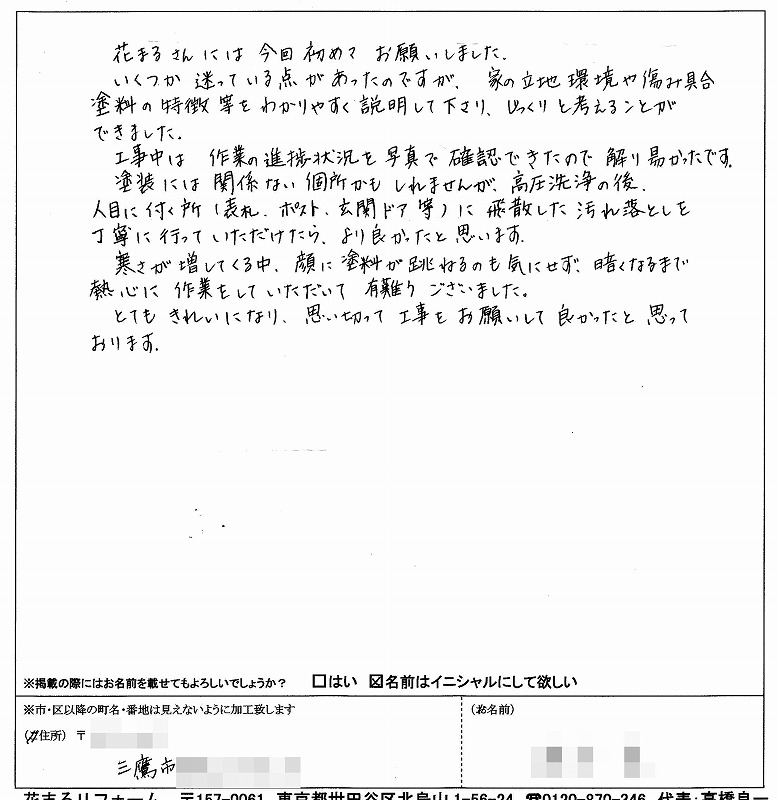 花まるさんには今回初めてお願いしました.
いくつか迷っている点があったのですが、家の立地環境や傷み具合
塗料の特徴等をわかりやすく説明して下さり、じっくりと考えることが
できました.
工事中は 作業の進捗状況を写真で確認できたので解り易かったです.
塗装には関係ない個所かもしれませんが、高圧洗浄の後、
人目に付く所(表札、ポスト、玄関ドア等)に飛散した汚れ落としを
丁寧に行っていただけたら、より良かったと思います.
寒さが増してくる中、顔に塗料が跳ねるのも気にせず、暗くなるまで
熱心に作業をしていただいて有難うございました。
とてもきれいになり、思い切って工事をお願いして良かったと思って
おります.
※掲載の際にはお名前を載せてもよろしいでしょうか? □はい ☒名前はイニシャルにして欲しい
※市・区以降の町名・番地は見えないように加工致します
(お名前)
(ご住所) 〒
三鷹市
花まるリフォーム 〒157-0061 東京都世田谷区北烏山1-56-24 ☎0120-870-346 代表:高橋良一